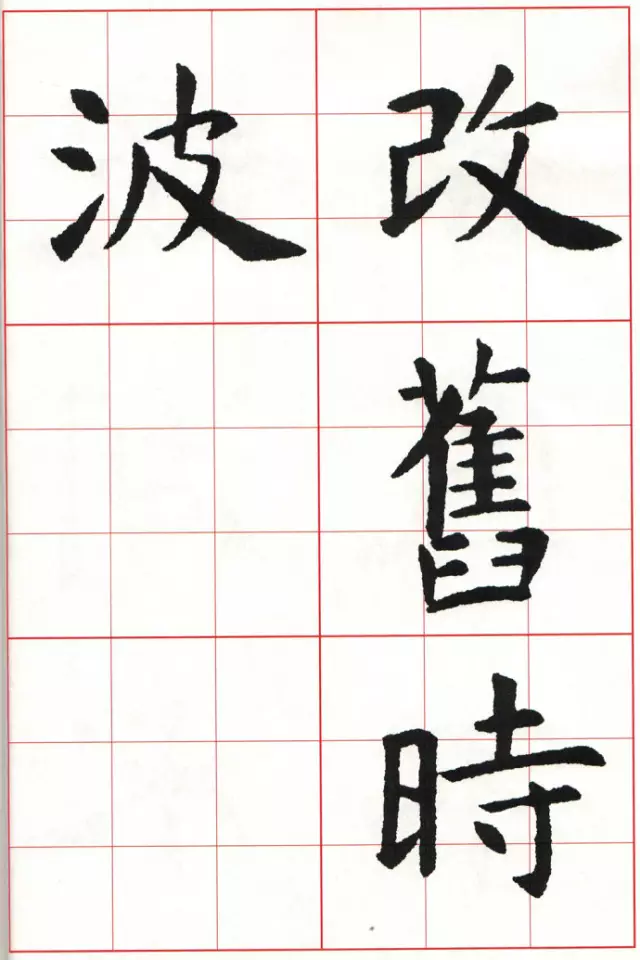 改舊時
波